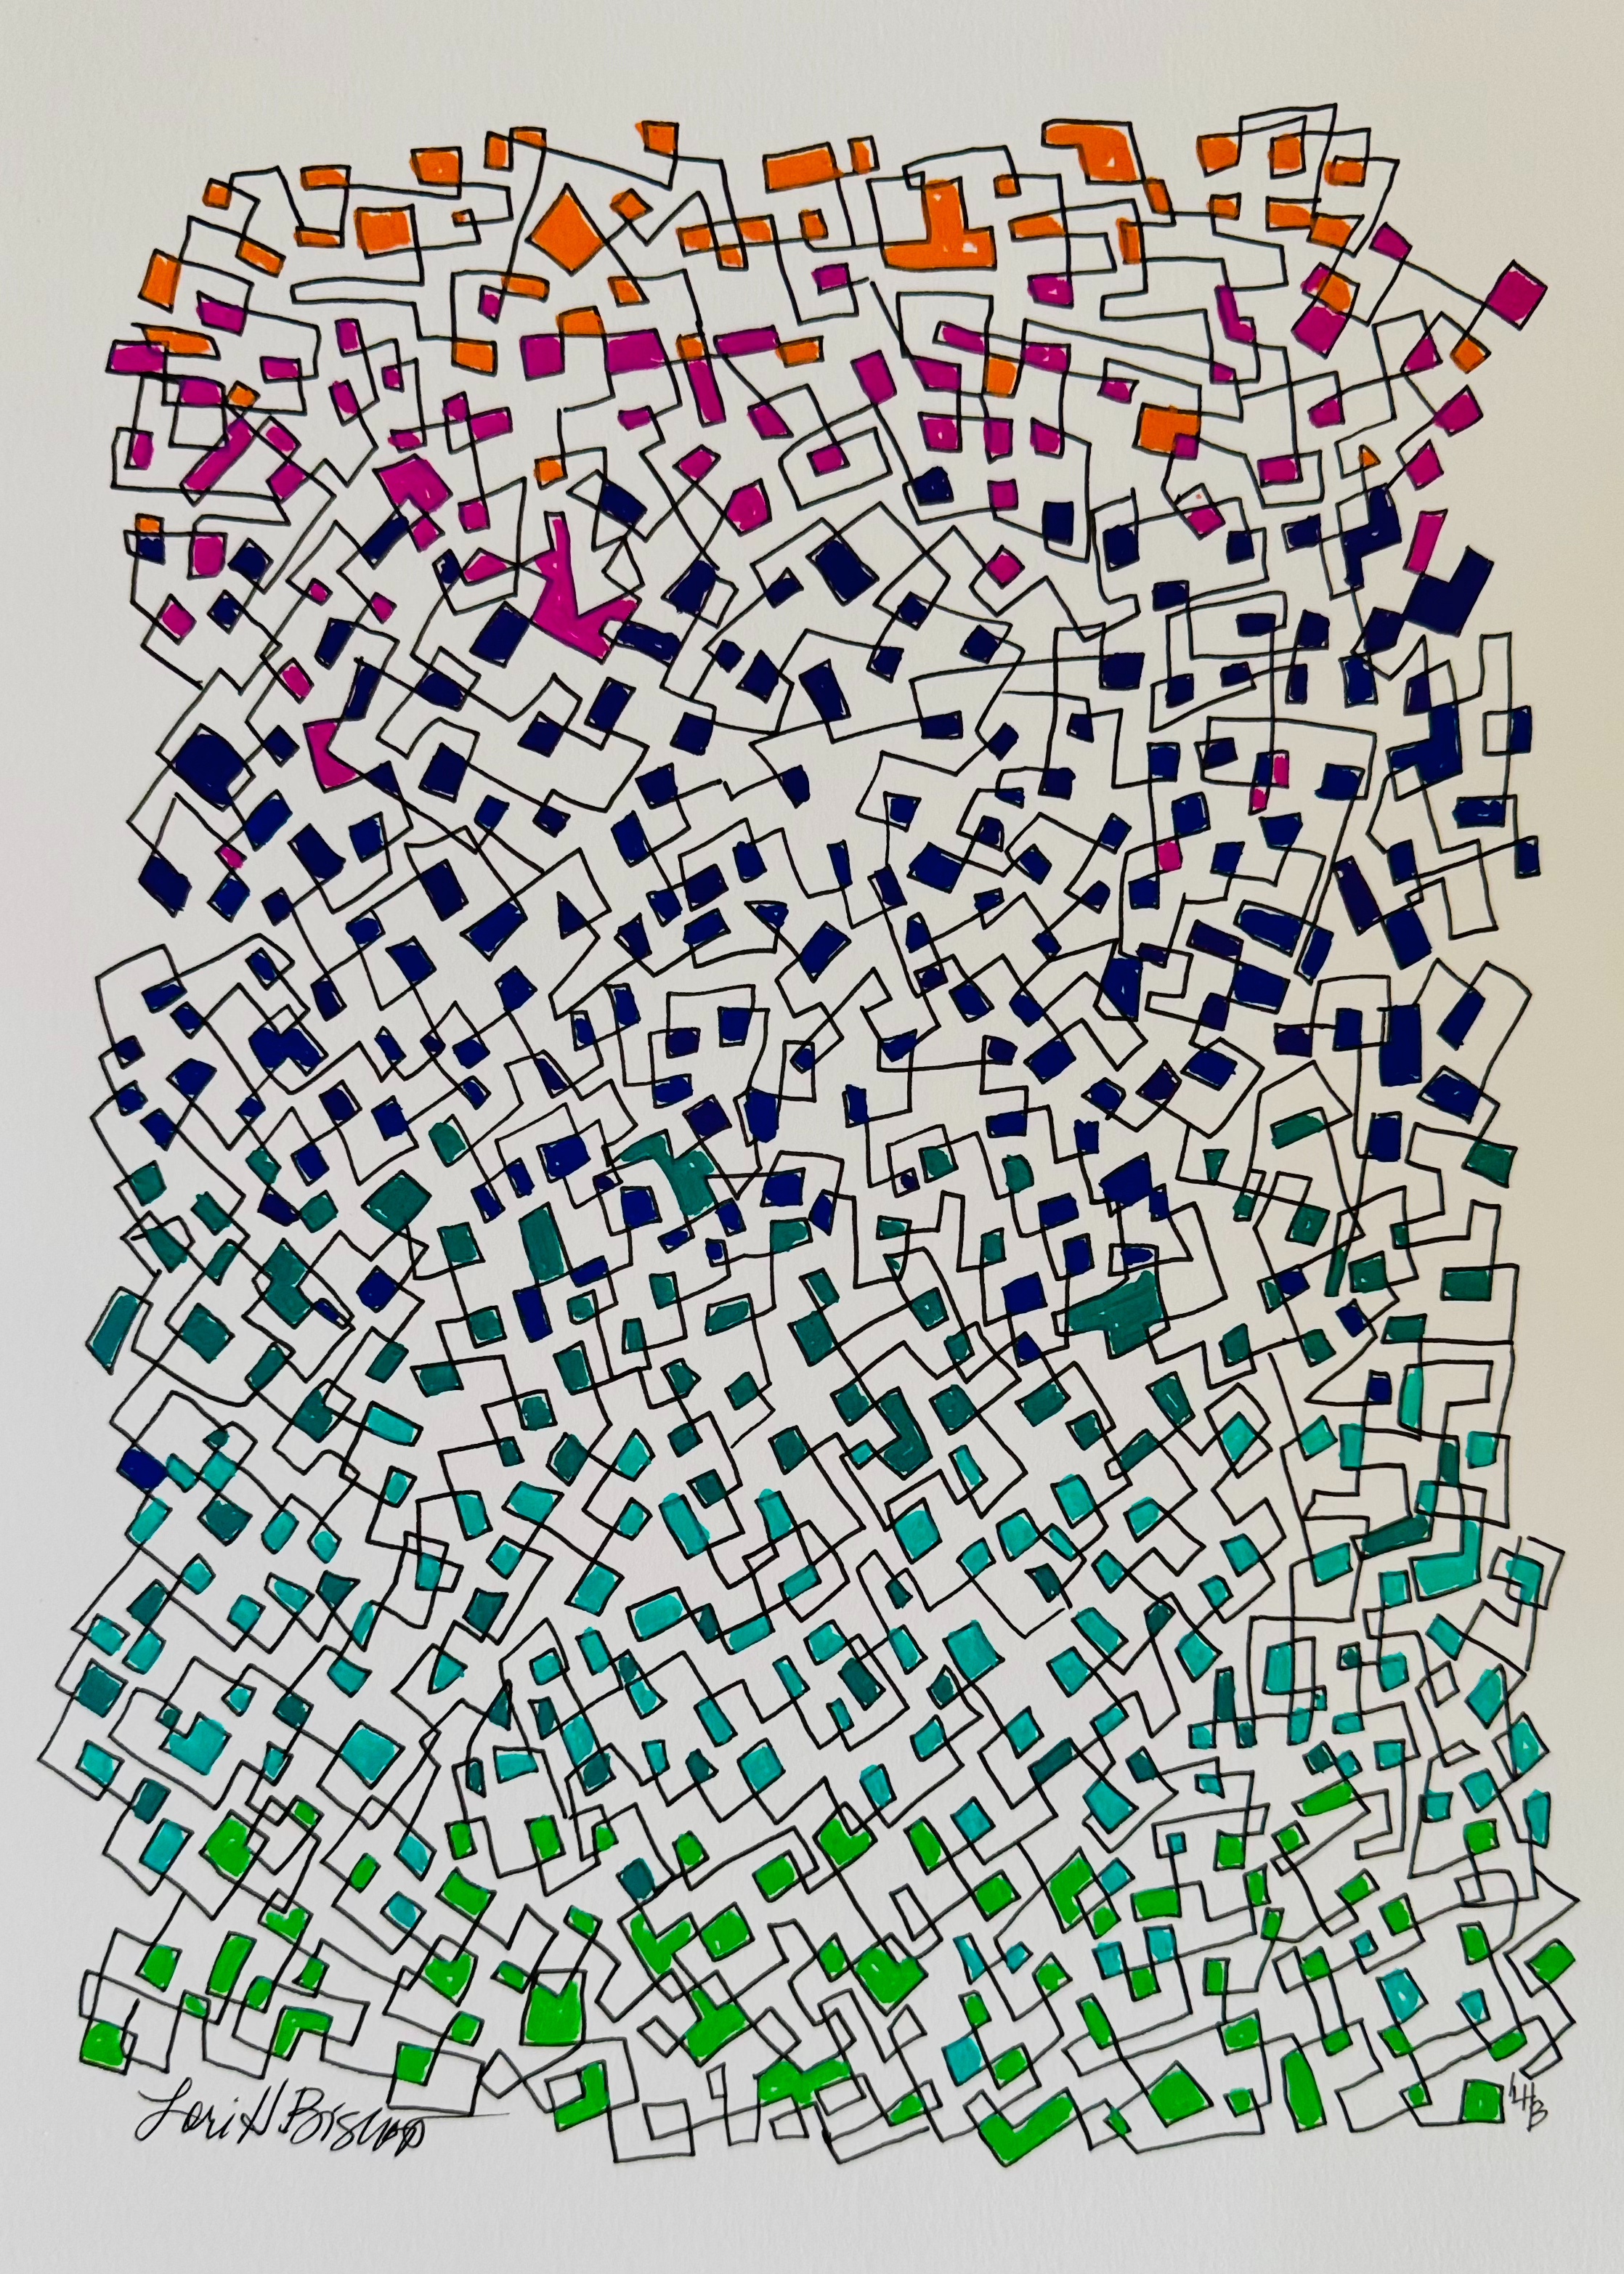 Lori H Bishop
LHB